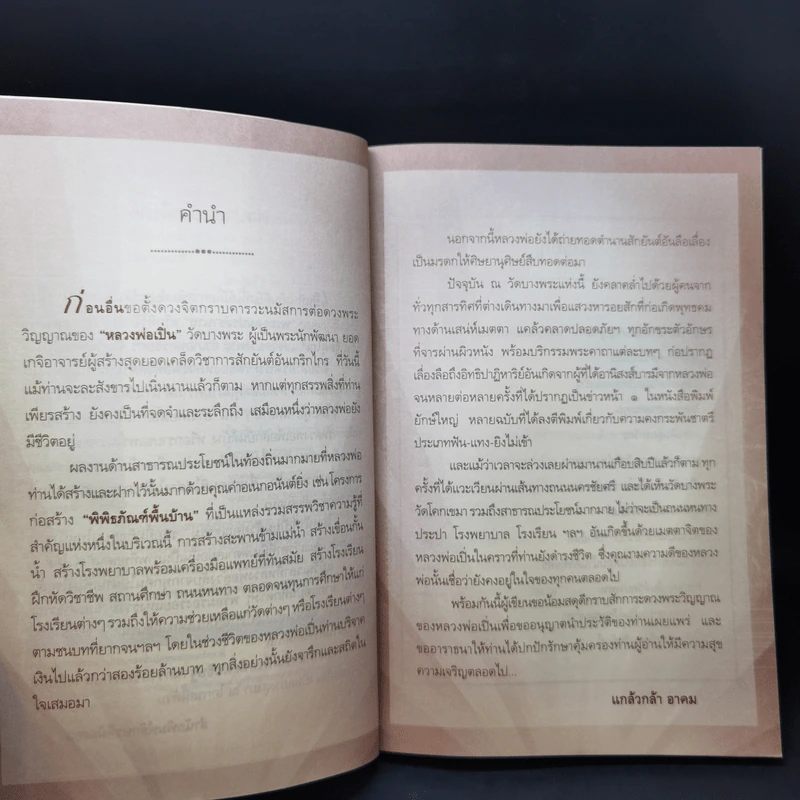 คำนำ
ก่อนอื่นขอตั้งดวงจิตกราบคารวะนมัสการต่อดวงพระ
วิญญาณของ “หลวงพ่อเปิ่น” วัดบางพระ ผู้เป็นพระนักพัฒนา ยอด
เกจิอาจารย์ผู้สร้างสุดยอดเคล็ดวิชาการสักยันต์อันเกริกไกร ที่วันนี้
แม้ท่านจะละสังขารไปเนิ่นนานแล้วก็ตาม หากแต่ทุกสรรพสิ่งที่ท่าน
เพียรสร้าง ยังคงเป็นที่จดจำและระลึกถึง เสมือนหนึ่งว่าหลวงพ่อยัง
มีชีวิตอยู่
ผลงานด้านสาธารณประโยชน์ในท้องถิ่นมากมายที่หลวงพ่อ
ท่านได้สร้างและฝากไว้นั้นมากด้วยคุณค่าอเนกอนันต์ยิ่ง เช่นโครงการ
ก่อสร้าง “พิพิธภัณฑ์พื้นบ้าน” ที่เป็นแหล่งรวมสรรพวิชาความรู้ที่
สำคัญแห่งหนึ่งในบริเวณนี้ การสร้างสะพานข้ามแม่น้ำ สร้างเขื่อนกั้น
น้ำ สร้างโรงพยาบาลพร้อมเครื่องมือแพทย์ที่ทันสมัย สร้างโรงเรียน
ฝึกหัดวิชาชีพ สถานศึกษา ถนนหนทาง ตลอดจนทุนการศึกษาให้แก่
โรงเรียนต่างๆ รวมถึงให้ความช่วยเหลือแก่วัดต่างๆ หรือโรงเรียนต่างๆ
ตามชนบทที่ยากจนฯลฯ โดยในช่วงชีวิตของหลวงพ่อเปิ่นท่านบริจาค
เงินไปแล้วกว่าสองร้อยล้านบาท ทุกสิ่งอย่างนั้นยังจารึกและสถิตใน
ใจเสมอมา
นอกจากนี้หลวงพ่อยังได้ถ่ายทอดตำนานสักยันต์อันลือเลื่อง
เป็นมรดกให้ศิษยานุศิษย์สืบทอดต่อมา
ปัจจุบัน ณ วัดบางพระแห่งนี้ ยังคลาคล่ำไปด้วยผู้คนจาก
ทั่วทุกสารทิศที่ต่างเดินทางมาเพื่อแสวงหารอยสักที่ก่อเกิดพุทธคม
ทางด้านเสน่ห์เมตตา แคล้วคลาดปลอดภัยฯ ทุกอักขระตัวอักษร
ที่จารผ่านผิวหนัง พร้อมบริกรรมพระคาถาแต่ละบทๆ ก่อปรากฏ
เลื่องลือถึงอิทธิปาฏิหาริย์อันเกิดจากผู้ที่ได้อานิสงส์บารมีจากหลวงพ่อ
จนหลายต่อหลายครั้งที่ได้ปรากฏเป็นข่าวหน้า ๑ ในหนังสือพิมพ์
ยักษ์ใหญ่ หลายฉบับที่ได้ลงตีพิมพ์เกี่ยวกับความคงกระพันชาตรี
ประเภทฟัน-แทง-ยิงไม่เข้า
และแม้ว่าเวลาจะล่วงเลยผ่านมานานเกือบสิบปีแล้วก็ตาม ทุก
ครั้งที่ได้แวะเวียนผ่านเส้นทางถนนนครชัยศรี และได้เห็นวัดบางพระ
วัดโคกเขมา รวมถึงสาธารณะประโยชน์มากมาย ไม่ว่าจะเป็นถนนหนทาง
ประปา โรงพยาบาล โรงเรียน ฯลฯ อันเกิดขึ้นด้วยเมตตาจิตของ
หลวงพ่อเปิ่นในคราวที่ท่านยังดำรงชีวิต ซึ่งคุณงามความดีของหลวง
พ่อนั้นเชื่อว่ายังคงอยู่ในใจของทุกคนตลอดไป
พร้อมกันนี้ผู้เขียนขอน้อมสดุดีกราบสักการะดวงพระวิญญาณ
ของหลวงพ่อเปิ่นเพื่อขออนุญาตนำประวัติของท่านเผยแพร่ และ
ขออาราธนาให้ท่านได้ปกปักรักษาคุ้มครองท่านผู้อ่านให้มีความสุข
ความเจริญตลอดไป...
แกล้วกล้า อาคม